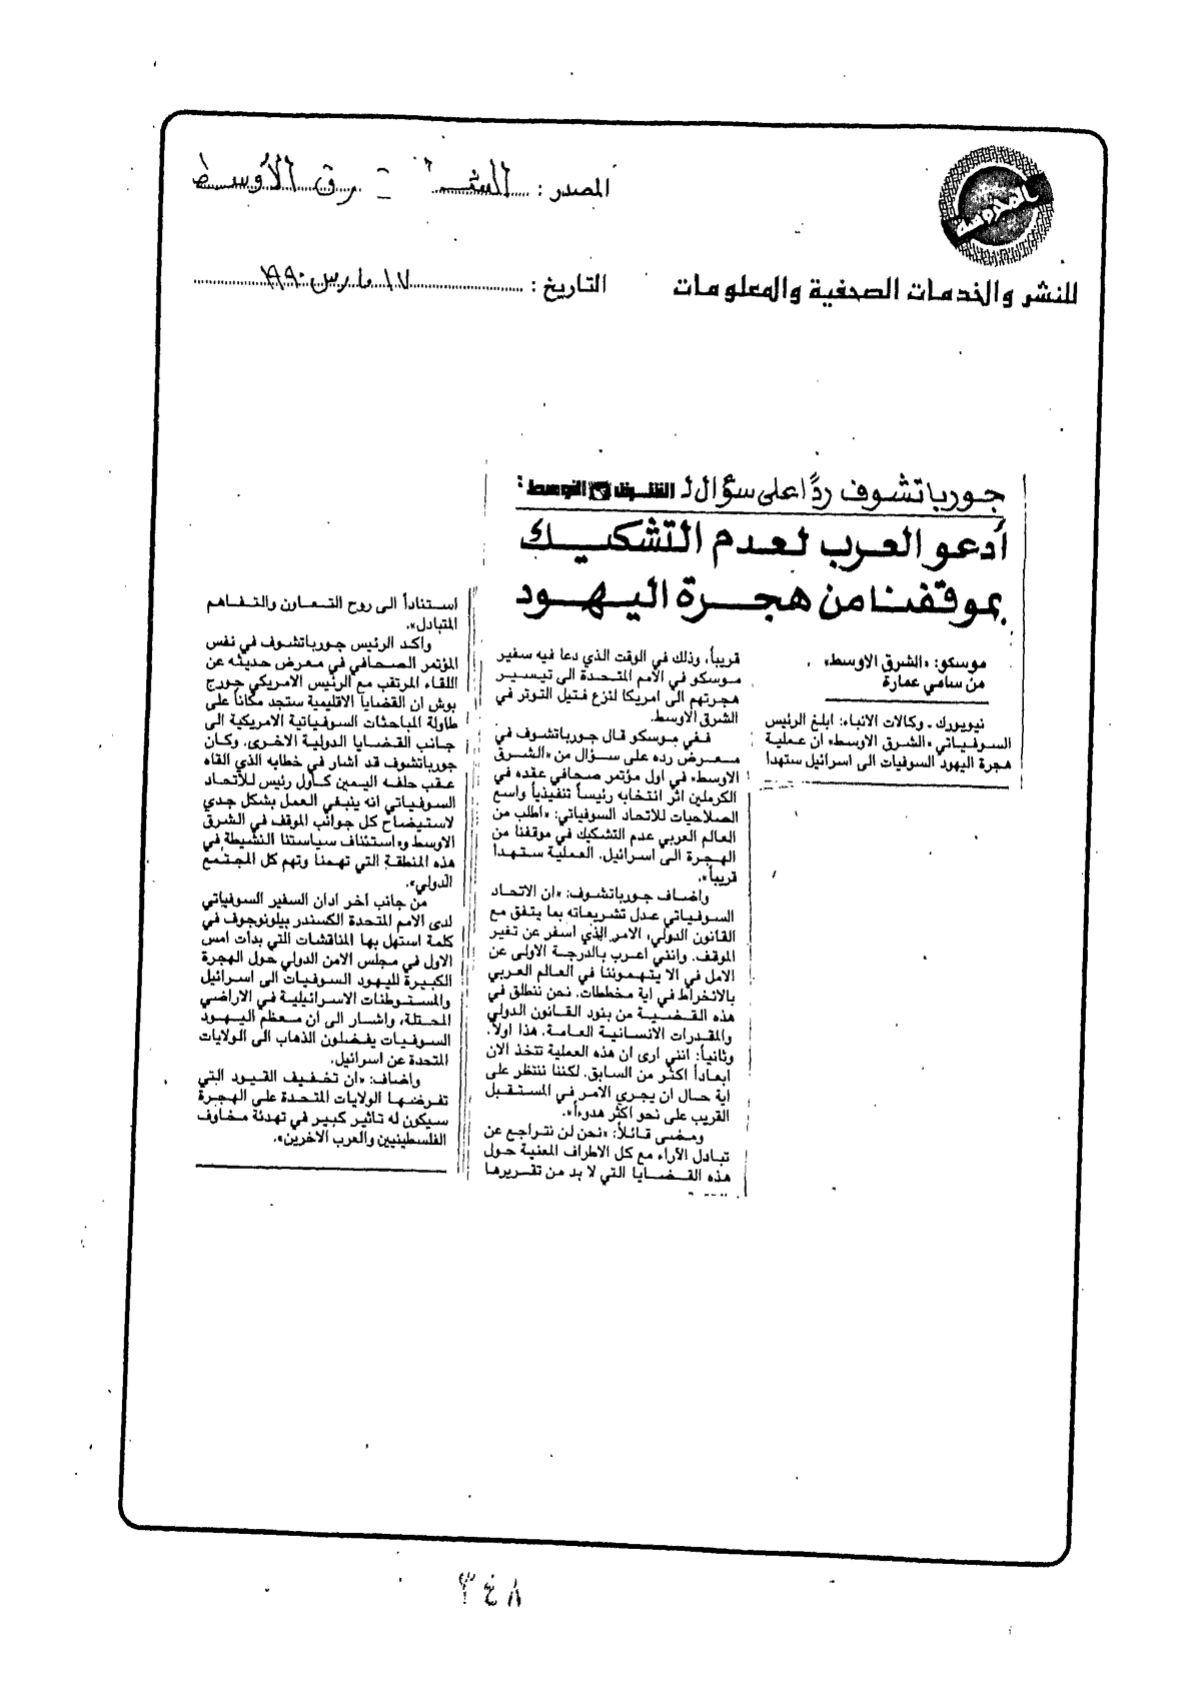 المحروسة
للنشر والخدمات الصحفية والمعلومات
المصدر : الشرق الأوسط
التاريخ : ١٧ مارس ١٩٩٠
جورباتشوف رداً على سؤال لـ الشرق الاوسط :
أدعو العرب لعدم التشكيك
بموقفنا من هجرة اليهود
موسكو: «الشرق الاوسط»
من سامي عمارة
نيويورك ـ وكالات الانباء: ابلغ الرئيس
السوفياتي «الشرق الاوسط» ان عملية
هجرة اليهود السوفيات الى اسرائيل ستهدأ
قريباً، وذلك في الوقت الذي دعا فيه سفير
موسكو في الامم المتحدة الى تيسير
هجرتهم الى امريكا لنزع فتيل التوتر في
الشرق الاوسط.
ففي موسكو قال جورباتشوف في
معرض رده على سؤال من «الشرق
الاوسط» في اول مؤتمر صحافي عقده في
الكرملين اثر انتخابه رئيساً تنفيذياً واسع
الصلاحيات للاتحاد السوفياتي: «اطلب من
العالم العربي عدم التشكيك في موقفنا من
الهجرة الى اسرائيل. العملية ستهدأ
قريباً».
واضاف جورباتشوف: «ان الاتحاد
السوفياتي عدل تشريعاته بما يتفق مع
القانون الدولي، الامر الذي اسفر عن تغير
الموقف. وانني اعرب بالدرجة الاولى عن
الامل في الا يتهموننا في العالم العربي
بالانخراط في اية مخططات. نحن ننطلق في
هذه القضية من بنود القانون الدولي
والمقدرات الانسانية العامة. هذا اولاً.
وثانياً: انني ارى ان هذه العملية تتخذ الان
ابعاداً اكثر من السابق. لكننا ننتظر على
اية حال ان يجري الامر في المستقبل
القريب على نحو اكثر هدوءاً».
ومضى قائلاً: «نحن لن نتراجع عن
تبادل الآراء مع كل الاطراف المعنية حول
هذه القضايا التي لا بد من تقريرها
استناداً الى روح التعاون والتفاهم
المتبادل».
واكد الرئيس جورباتشوف في نفس
المؤتمر الصحافي في معرض حديثه عن
اللقاء المرتقب مع الرئيس الامريكي جورج
بوش ان القضايا الاقليمية ستجد مكاناً على
طاولة المباحثات السوفياتية الامريكية الى
جانب القضايا الدولية الاخرى. وكان
جورباتشوف قد اشار في خطابه الذي القاه
عقب حلفه اليمين كأول رئيس للاتحاد
السوفياتي انه ينبغي العمل بشكل جدي
لاستيضاح كل جوانب الموقف في الشرق
الاوسط و«استئناف سياستنا النشيطة في
هذه المنطقة التي تهمنا وتهم كل المجتمع
الدولي».
من جانب اخر ادان السفير السوفياتي
لدى الامم المتحدة الكسندر بيلونوجوف في
كلمة استهل بها المناقشات التي بدأت امس
الاول في مجلس الامن الدولي حول الهجرة
الكبيرة لليهود السوفيات الى اسرائيل
والمستوطنات الاسرائيلية في الاراضي
المحتلة، واشار الى ان معظم اليهود
السوفيات يفضلون الذهاب الى الولايات
المتحدة عن اسرائيل.
واضاف: «ان تخفيف القيود التي
تفرضها الولايات المتحدة على الهجرة
سيكون له تاثير كبير في تهدئة مخاوف
الفلسطينيين والعرب الاخرين».
٣٤٨